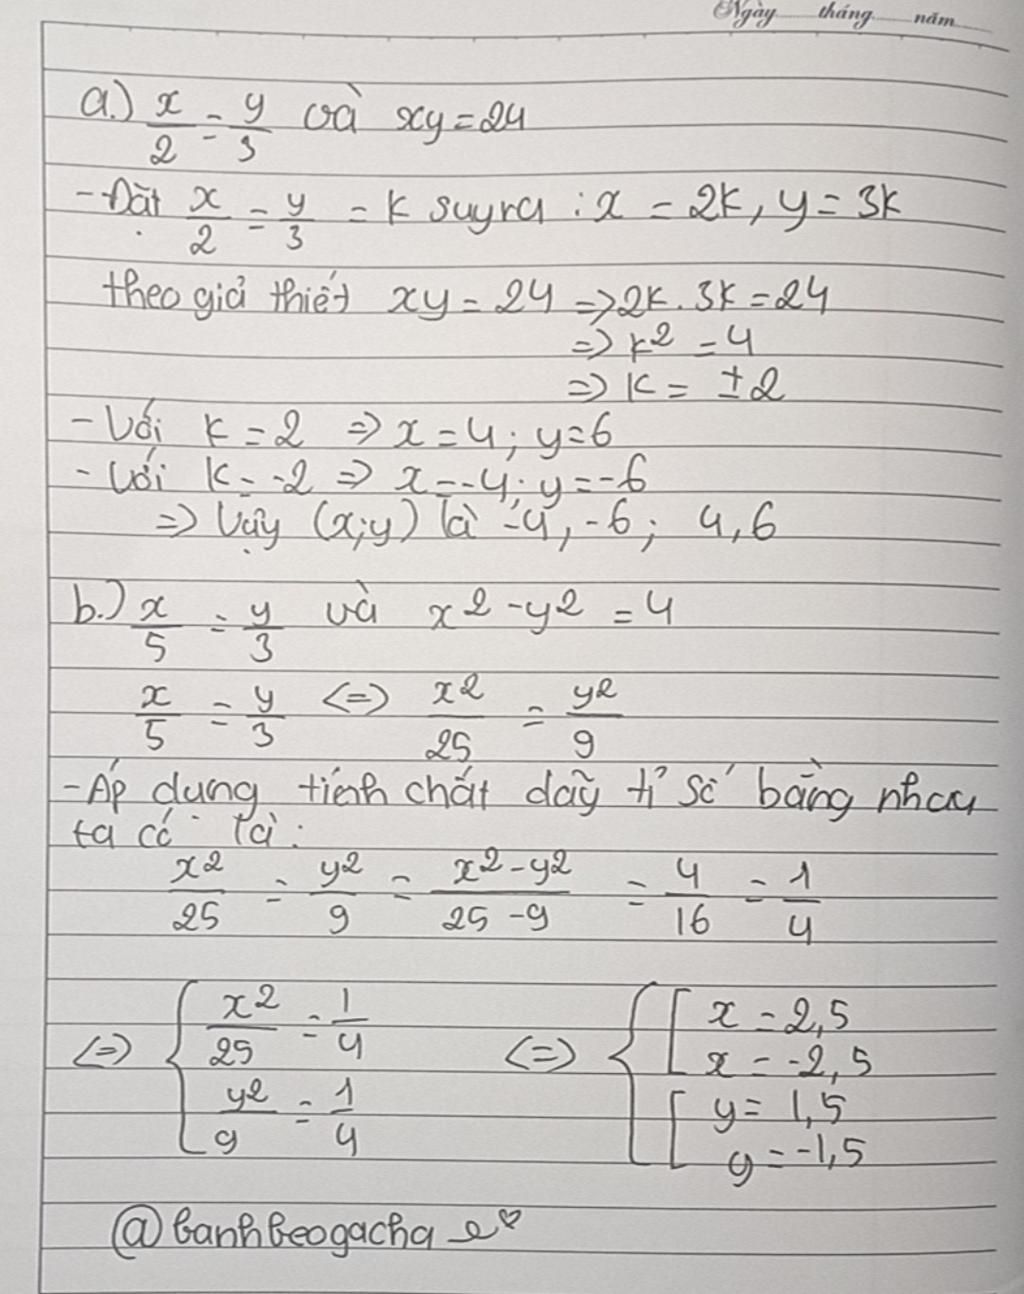 Ngày tháng năm
a.) x/2 = y/3 và xy = 24
- Đặt x/2 = y/3 = k suy ra : x = 2k, y = 3k
theo giả thiết xy = 24 => 2k . 3k = 24
=> k² = 4
=> k = ±2
- Với k = 2 => x = 4; y = 6
- Với k = -2 => x = -4; y = -6
=> Vậy (x;y) là -4, -6; 4,6
b.) x/5 = y/3 và x² - y² = 4
x/5 = y/3 <=> x²/25 = y²/9
- Áp dụng tính chất dãy tỉ số bằng nhau
ta có là :
x²/25 = y²/9 = (x² - y²)/(25 - 9) = 4/16 = 1/4
<=> { x²/25 = 1/4 <=> { [ x = 2,5
x = -2,5
y²/9 = 1/4 [ y = 1,5
y = -1,5
@banhbeogacha